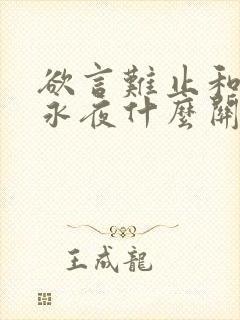 欲言難止和
永夜什麼開
王成龍